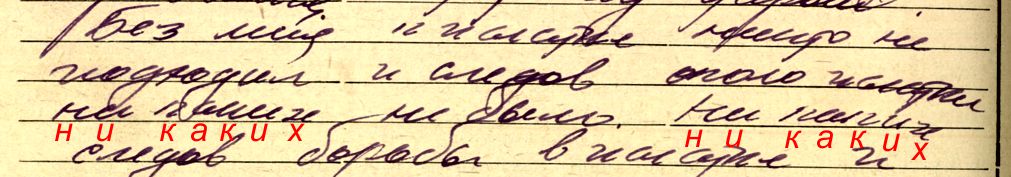 Без меня к палатке никто не
подходил и следов около палатки
ни каких не было. Ни каких
ни каких ни каких
следов борьбы в палатке и